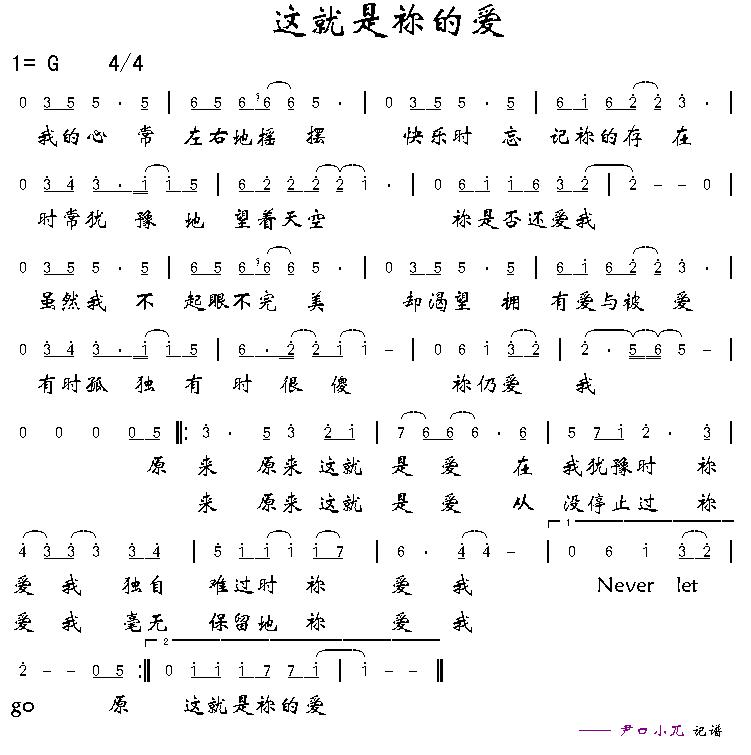 这就是祢的爱
1= G 4/4
0 3 5 5 · 5 | 6 5 6 3 6 6 5 · | 0 3 5 5 · 5 | 6 i 6 2 2 3 ·
我的心 常 左右地摇 摆 快乐时 忘 记祢的存 在
0 3 4 3 · i i 5 | 6 2 2 2 2 i · | 0 6 i i 6 3 2 | 2 - - 0
时常犹 豫 地 望着天空 祢是否还爱我
0 3 5 5 · 5 | 6 5 6 3 6 6 5 · | 0 3 5 5 · 5 | 6 i 6 2 2 3 ·
虽然我 不 起眼不完 美 却渴望 拥 有爱与被 爱
0 3 4 3 · i i 5 | 6 · 2 2 i i - | 0 6 i 3 2 | 2 · 5 6 5 -
有时孤 独 有 时 很 傻 祢仍爱 我
0 0 0 0 5 ‖: 3 · 5 3 2 i | 7 6 6 6 · 6 | 5 7 i 2 · 3
原 来 原来这就 是 爱 在 我犹豫时 祢
来 原来这就 是 爱 从 没停止过 祢
4 3 3 3 3 4 | 5 i i i i 7 | 6 · 4 4 - | 1 0 6 i 3 2
爱 我 独自 难过时 祢 爱 我 Never let
爱 我 毫无 保留地 祢 爱 我
2 - - 0 5 :‖ 2 0 i i i 7 7 i | i - - ‖
go 原 这就是祢的爱
—— 尹口小兀 记谱